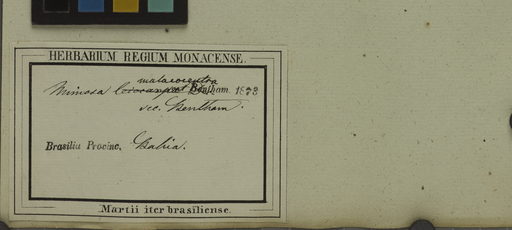 HERBARIUM REGIUM MONACENSE.
malacocentra
Mimosa Bentham. 1873
sec. Bentham.
Brasilia Provinc. Bahia.
Martii iter brasiliense.